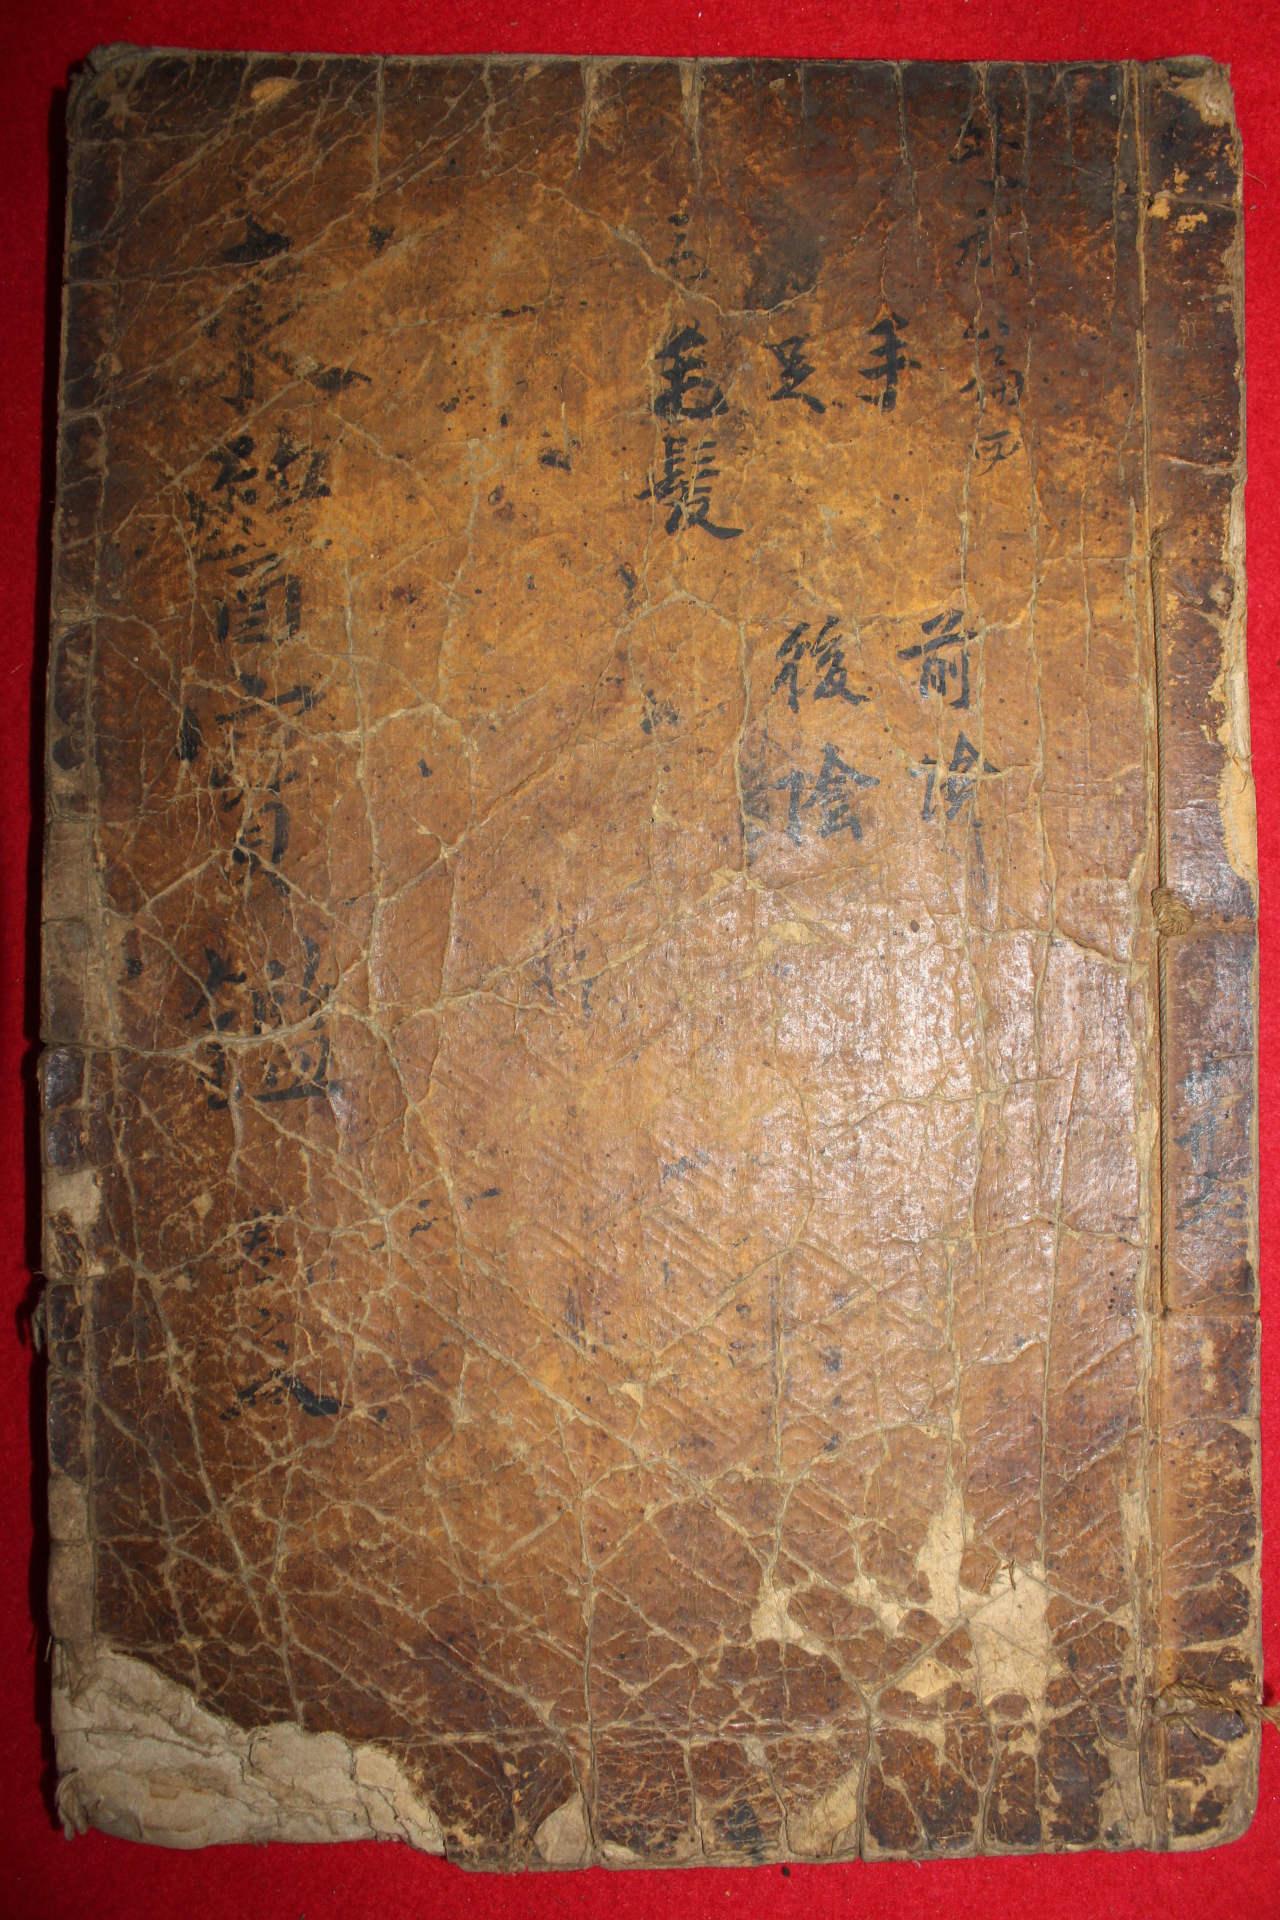 共廿五
外形篇四
手 前陰
足 後陰
毛髮
東醫寶鑑 卷之八